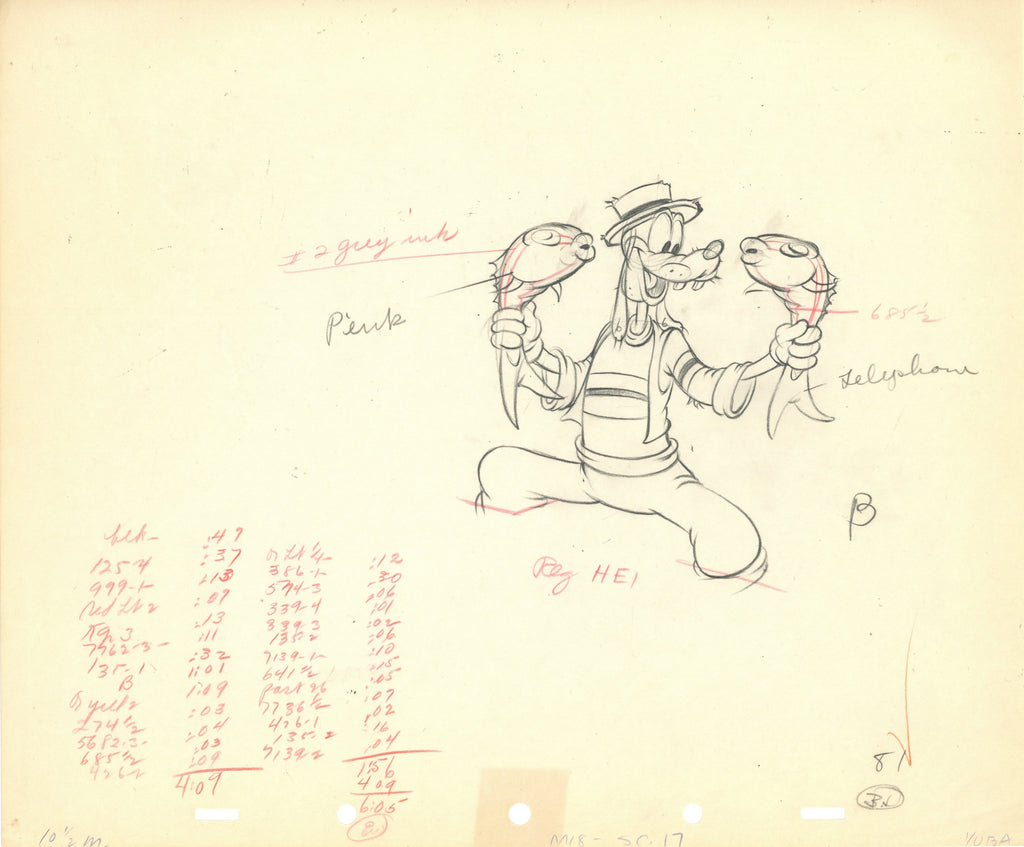 # 2 grey ink
Pink
685½
Telephone
B
Reg HE1
blk- :49
125-4 :37
999-1 :13
Red Lt 2 :07
:13
7762-3- :11
135-1 :32
B 1:01
1:09
274½ :03
5682-3- :04
685½ :03
426-2 :09
4:09
:12
386-1 :30
594-3 :06
339-4 :01
339-3 :02
135-2 :06
7139-1- :10
641½ :15
:05
7736½ :07
426-1 :02
135-2 :16
7139-2 :04
1:56
4 09
6:05
81
10½ M.
M18 - SC. 17
YUBA